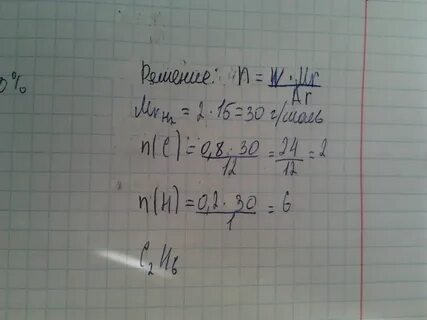 0%
Решение: n = W · Mr / Ar
Mr H2 = 2 · 15 = 30 г/моль
n(C) = 0,8 · 30 / 12 = 24 / 12 = 2
n(H) = 0,2 · 30 / 1 = 6
C2H6